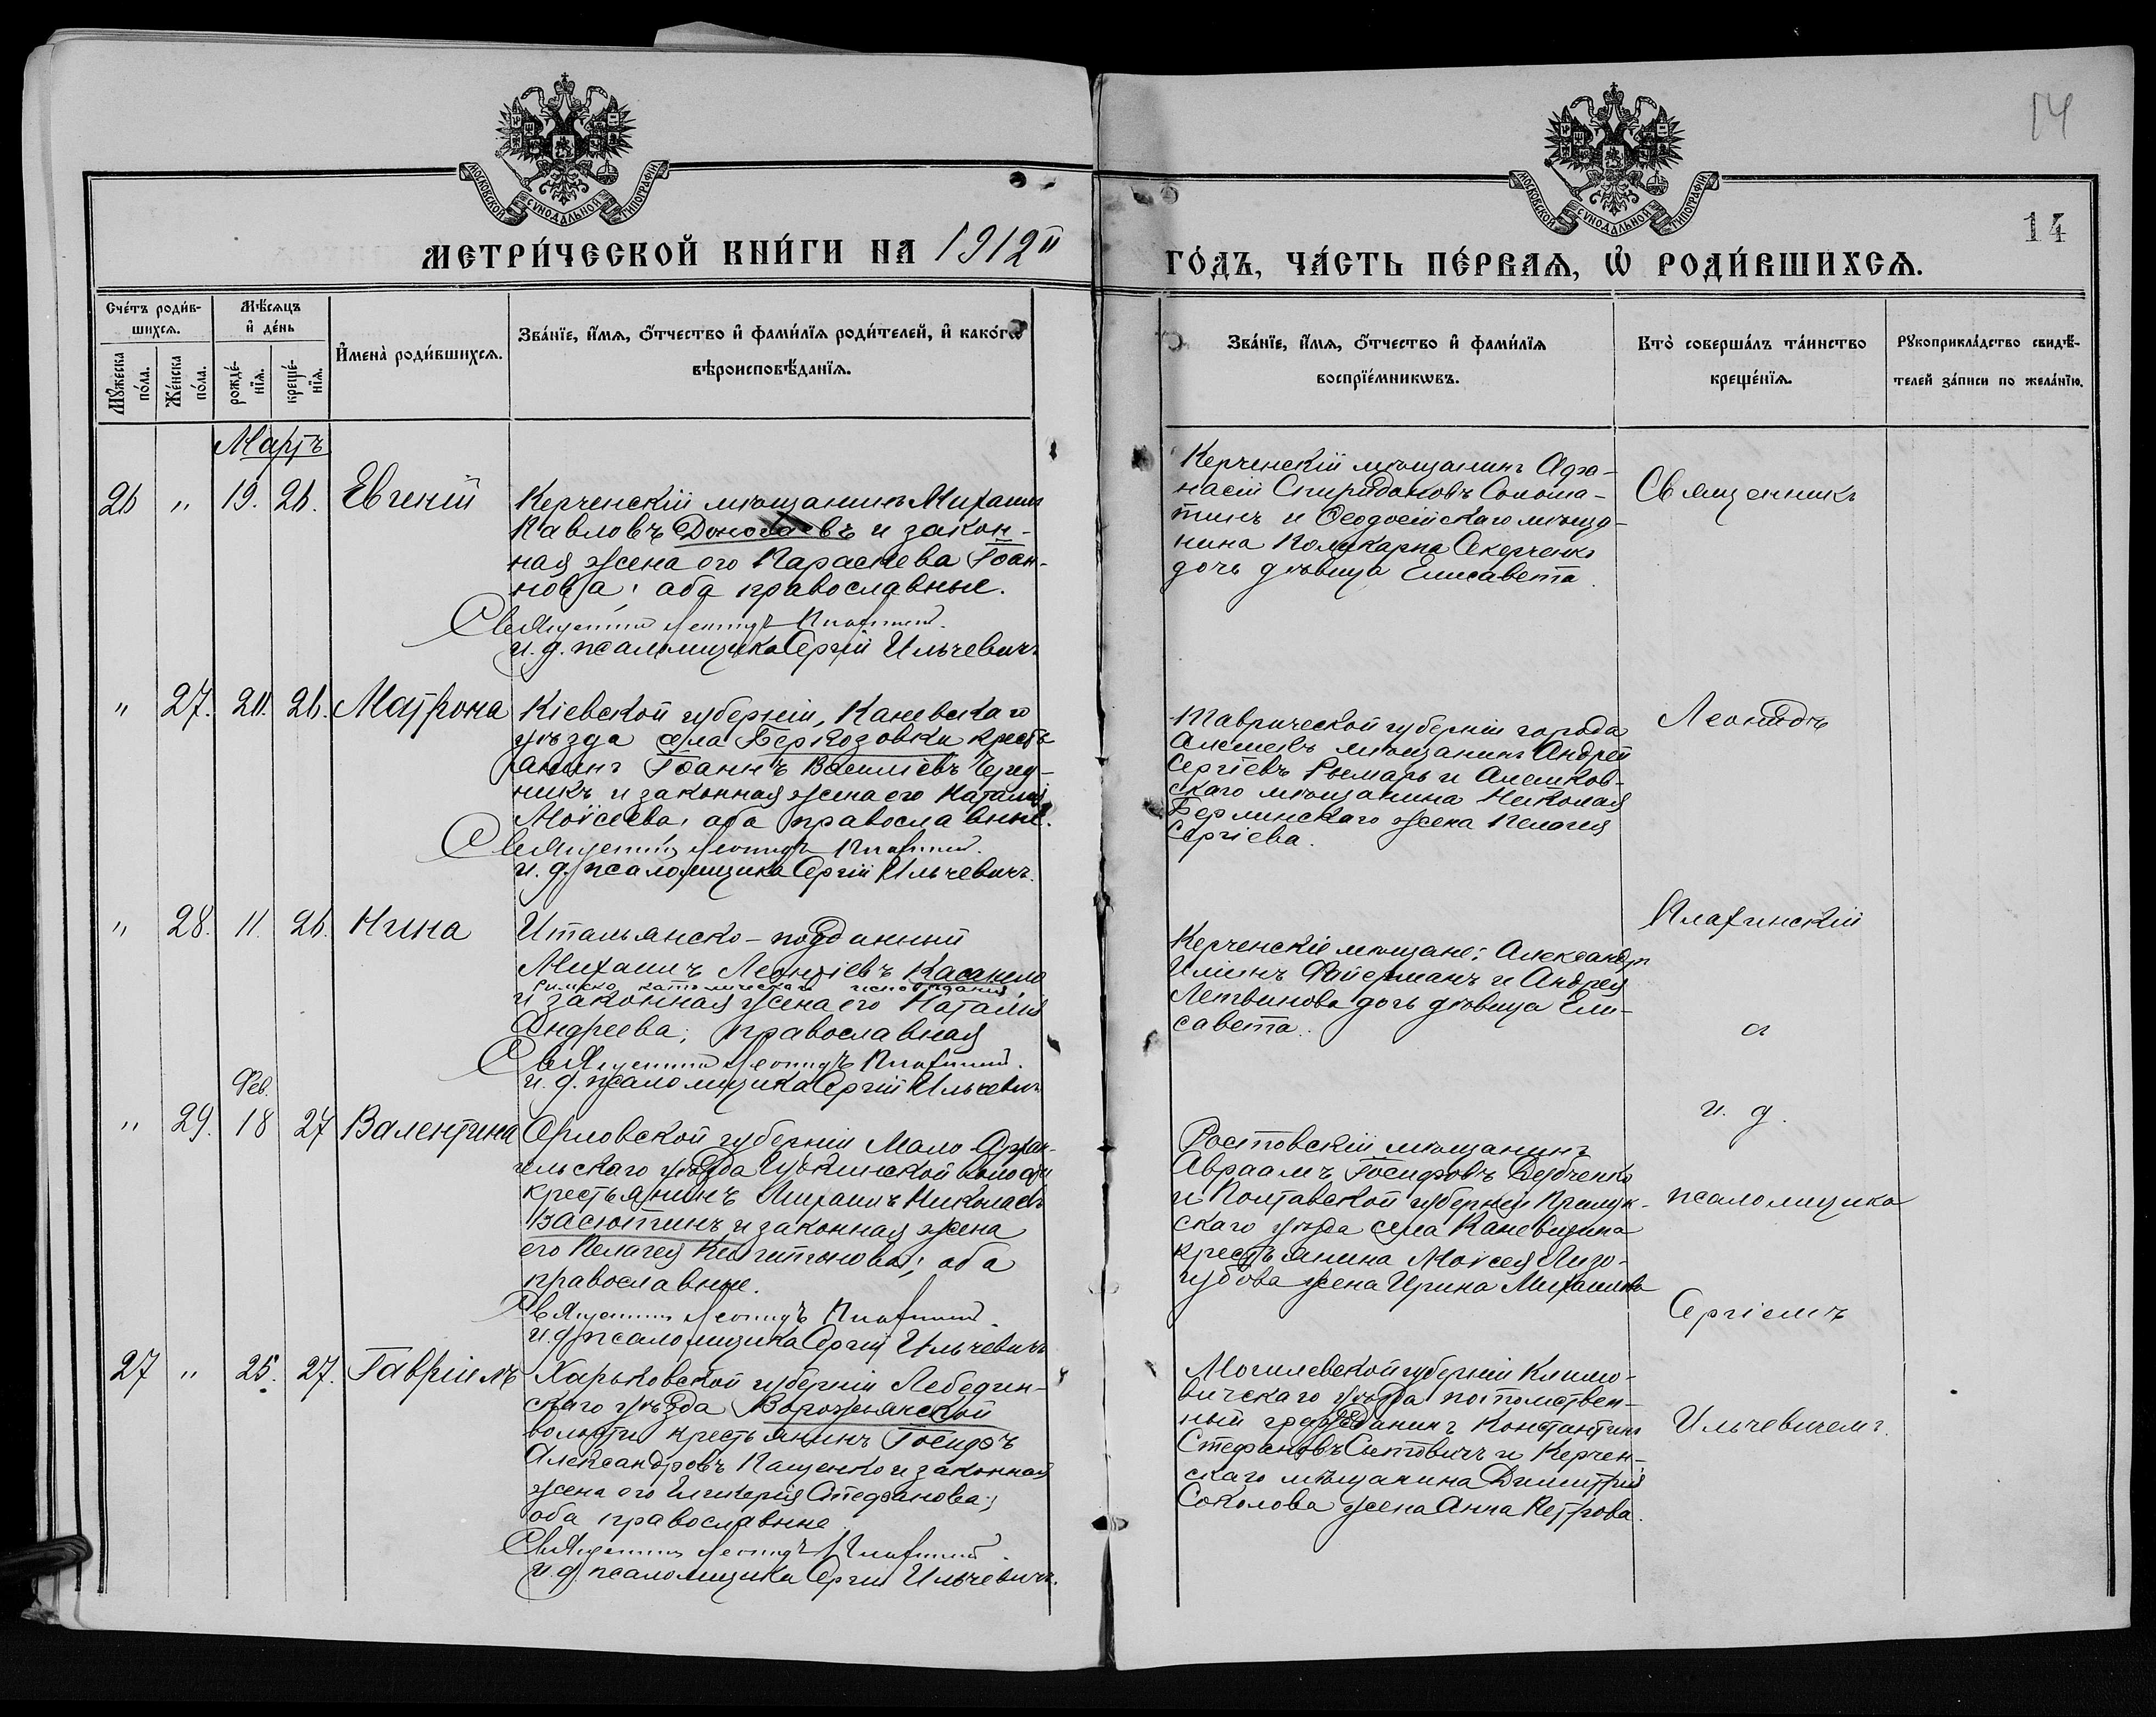 14
14
МОСКОВСКОЙ СѴНОДАЛЬНОЙ ТИПОГРАФІИ
МОСКОВСКОЙ СѴНОДАЛЬНОЙ ТИПОГРАФІИ
МЕТРИ́ЧЕСКОЙ КНИ́ГИ НА 1912
ГО́ДЪ, ЧА́СТЬ ПЕ́РВАѦ, Ѡ РОДИ́ВШИХСѦ.
Сче́тъ роди́в-
шихсѧ.
Мꙋ́жеска по́ла.
Же́нска по́ла.
Мѣ́сѧцъ
и҆ де́нь
рожде́-
нїѧ.
креще́-
нїѧ.
И҆мена̀ роди́вшихсѧ.
Зва́нїе, и҆́мѧ, ѻ҆́тчество и҆ фами́лїѧ роди́телей, и҆ како́гѡ
вѣроисповѣ́данїѧ.
Зва́нїе, и҆́мѧ, ѻ҆́тчество и҆ фами́лїѧ
воспрїе́мникѡвъ.
Кто̀ соверша́лъ та́инство
креще́нїѧ.
Рꙋкоприкла́дство свидѣ́-
телей за́писи по жела́нїю.
Мартъ
26 " 19. 26. Евгеній
Керченскій мѣщанинъ Михаилъ
Павловъ и закон-
ная жена его Параскева Іоан-
нова; оба православные.
Священникъ Леонидъ Плафинскій.
и. д. псаломщика Сергій Ильчевичъ
Керченскій мѣщанинъ Афа-
насій Спиридоновъ Солома-
тинъ и Ѳеодосійскаго мѣща-
нина Поликарпа
дочь дѣвица Елисавета.
Священникъ
" 27. 20. 26. Матрона
Кіевской губерніи, Каневскаго
уѣзда села Беркозовки кресть
янинъ Іоаннъ Василіевъ Черед-
никъ и законная жена его Наталія
Моисеева; оба православные.
Священникъ Леонидъ Плафинскій.
и. д. псаломщика Сергій Ильчевичъ.
Таврической губерніи города
Алешекъ мѣщанинъ Андрей
Сергіевъ Рымарь и Алешков-
скаго мѣщанина Николая
Берлинскаго жена Пелагія
Сергіева.
Леонидъ
" 28. 11. 26. Нина
Итальянско-подданный
Михаилъ Леонтіевъ
римско католическаго исповѣданія
и законная жена его Наталія
Андреева; православная
Священникъ Леонидъ Плафинскій.
и. д. псаломщика Сергій Ильчевичъ
Керченскіе мѣщане: Александръ
Ильинъ Фойерманъ и Андрея
Летвинова дочь дѣвица Ели-
савета.
Плафинскій
съ
Фев.
" 29. 18 27 Валентина
Орловской губерніи Мало-Архан-
гельскаго уѣзда волости
крестьянинъ Михаилъ Николаевъ
Васютинъ и законная жена
его Пелагея; оба
православные.
Священникъ Леонидъ Плафинскій.
и. д. псаломщика Сергій Ильчевичъ
Ростовскій мѣщанинъ
Авраамъ Іосифовъ
и Полтавской губерніи Прилук-
скаго уѣзда села Каневщина
крестьянина Моисея Лизо-
губова жена Ирина Михаилова
и. д.
псаломщика
Сергіемъ
27 " 25. 27. Гавріилъ
Харьковской губерніи Лебедин-
скаго уѣзда Ворожбянской
волости крестьянинъ Іосифъ
Александровъ Пащенко и законная
жена его Гликерія Стефанова;
оба православные.
Священникъ Леонидъ Плафинскій.
и. д. псаломщика Сергій Ильчевичъ.
Могилевской губерніи Климо-
вичскаго уѣзда потомствен-
ный гражданинъ Константинъ
Стефановъ и Керчен-
скаго мѣщанина Димитрія
Соколова жена Анна Петрова.
Ильчевичемъ.